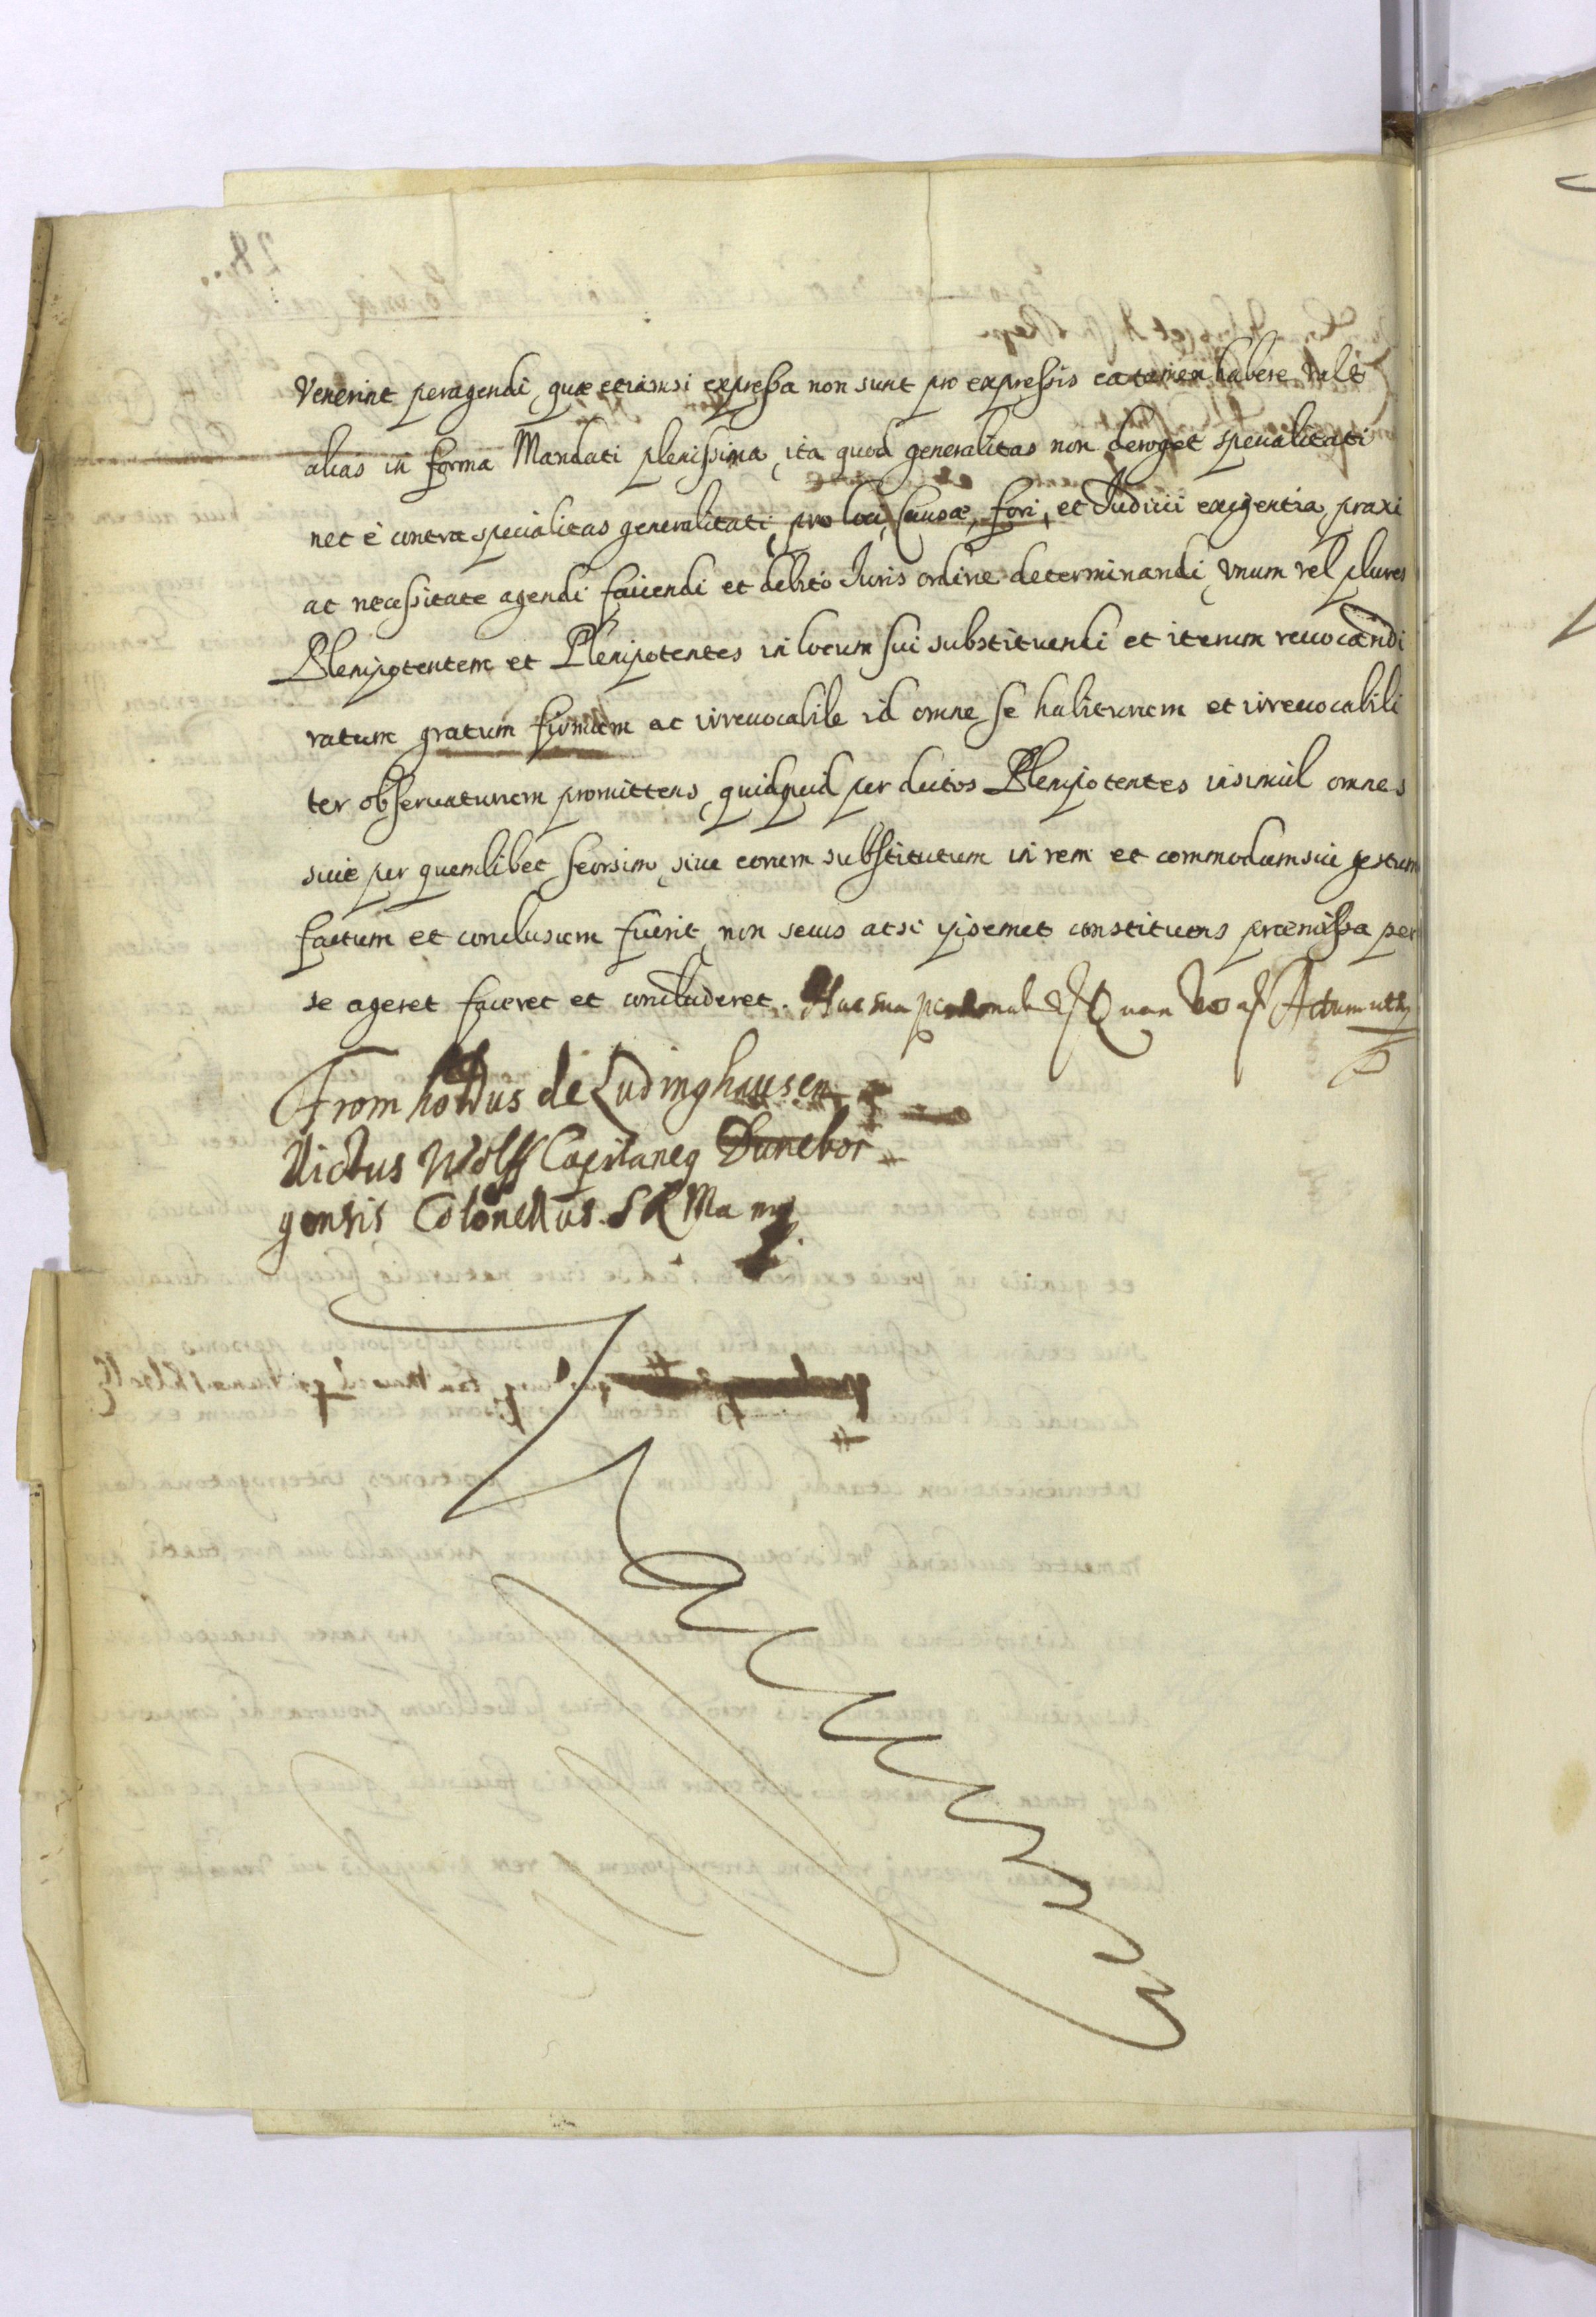 venerint peragendi, quæ etiamsi expressa non sunt pro expressis ea tamen habere vult
alias in forma Mandati plenissima, ita quod generalitas non deroget specialitati
nec è contra specialitas generalitati, pro loci, causæ, fori, et Iudicii exigentia, praxi
ac necessitate agendi faciendi et debitò Iuris ordine determinandi, vnum vel plures
Plenipotentem et Plenipotentes in locum sui substituendi et iterum reuocandi
ratum gratum firmum ac irreuocabile id omne se habiturum et irreuocabili
ter obseruaturum promittens, quidquid per dictos Plenipotentes insimùl omnes
siuè per quemlibet seorsim, siue eorum substitutum in rem et commodum sui gestum
factum et conclusum fuerit, non secus ac si ipsemet constituens præmissa per
se ageret faceret et concluderet. Hac sua Actum ut
From holdus de Ludinghausen
dictus Wolff Capitaneq Dunebor
gensis Colonellus S R Ma mp